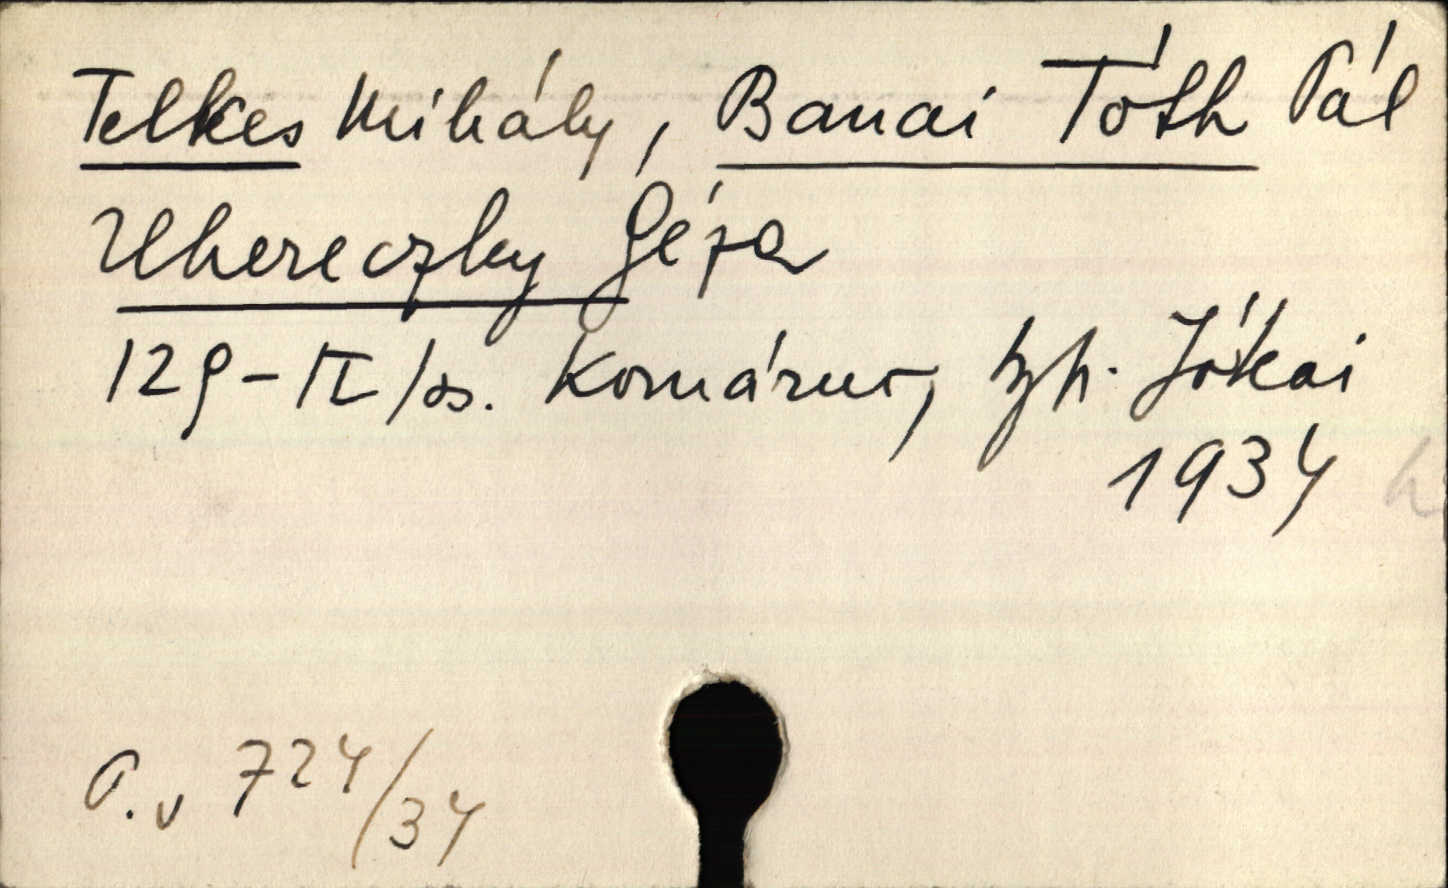 Telkes Mihály, Banai Tóth Pál
Uhereczky Géza
129-II/os. Komárno, tzh. Jókai
1934
P.v 724/34